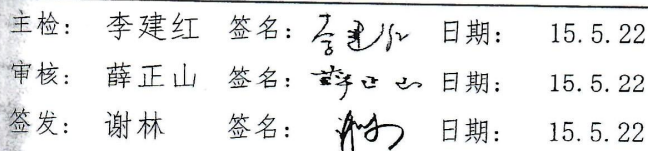 主检: 李建红 签名: 李建红 日期: 15.5.22
审核: 薛正山 签名: 薛正山 日期: 15.5.22
签发: 谢林 签名: 谢林 日期: 15.5.22